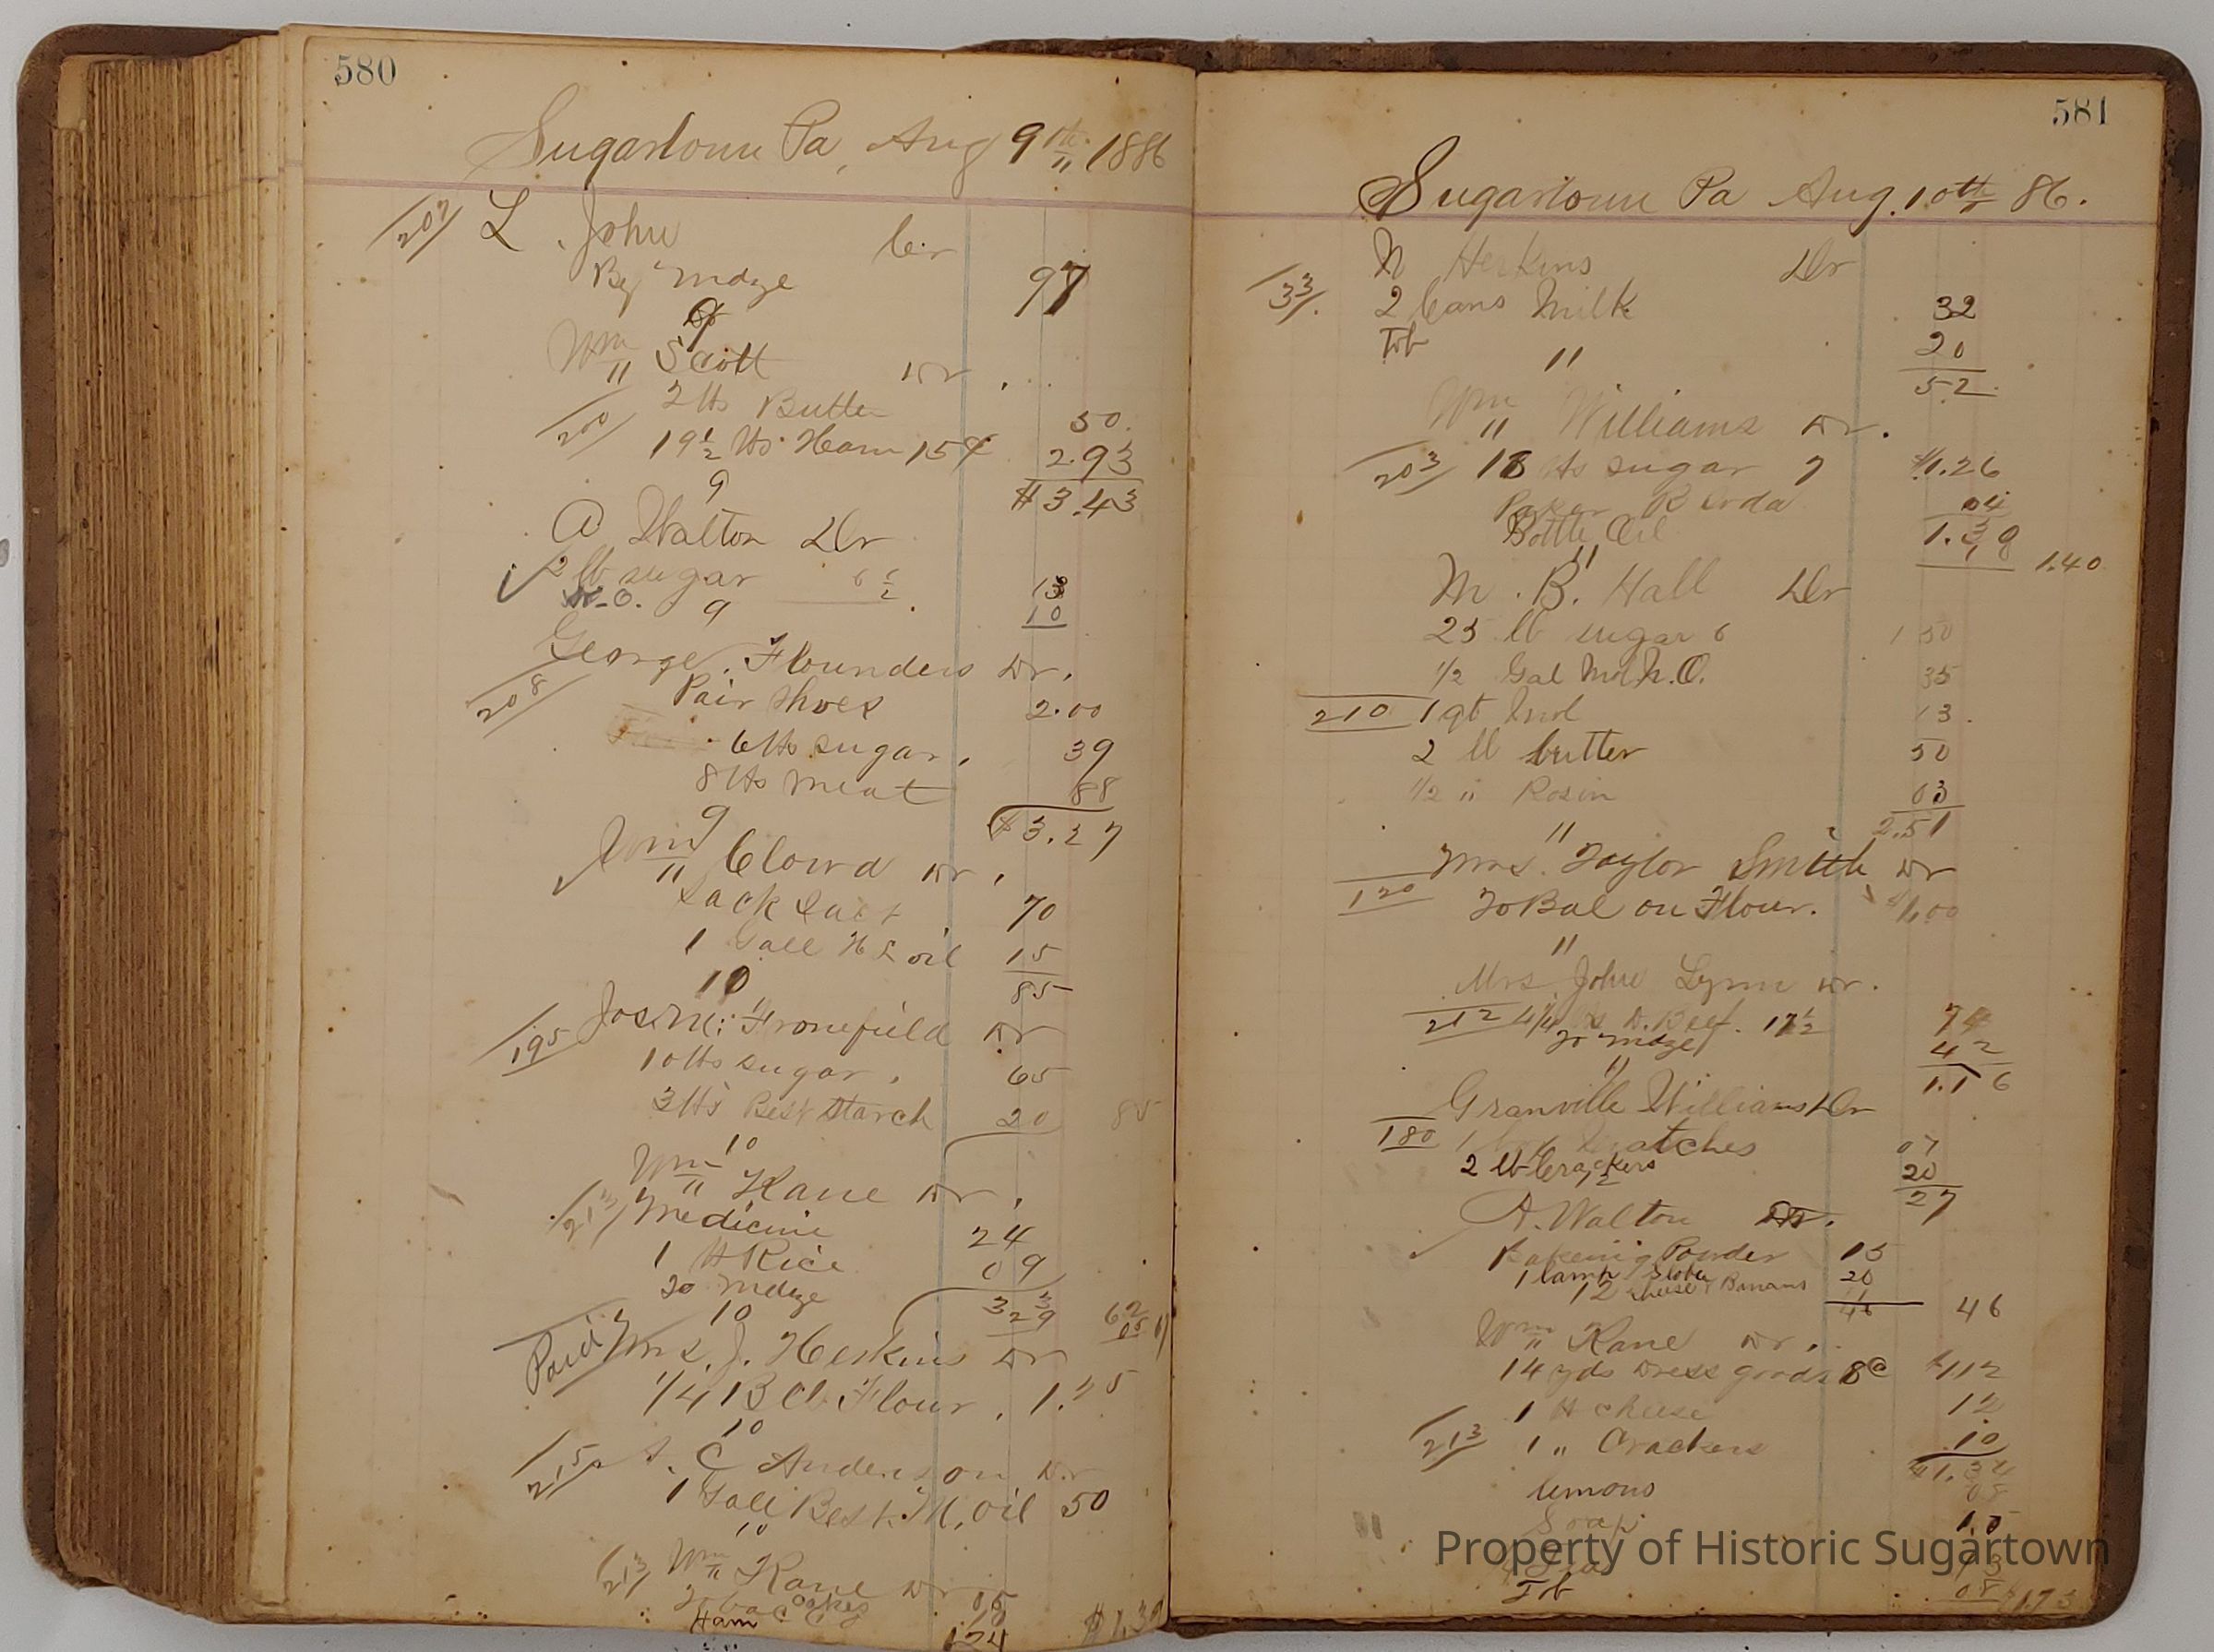 580
Sugartown Pa, Aug 9th 1886
207 L. John Cr
By mdze 97
9
Wm Scott Dr
2 lbs Butter 50
200 19½ lbs Ham 15¢ 2.93
$3.43
9
A Walton Dr
2 lb sugar 6½ 13
10
9
George Flounders Dr.
208 Pair Shoes 2.00
6 lbs sugar, 39
8 lbs meat 88
$3.27
9
Wm Clowd Dr.
Sack Salt 70
1 Gall H L oil 15
85
10
Jos. M. Fronefield Dr
195 10 lbs sugar, 65
3 lbs Best Starch 20 85
10
Wm Kane Dr.
213 Medicine 24
1 lb Rice 09
To mdze
10
Paid Mrs. J. Herkins Dr
1/4 Bbl Flour. 1.25
10
215 C Anderson Dr
1 Gall Best H. Oil 50
10
213 Wm Kane Dr
Ham 1.24
581
Sugartown Pa Aug. 10th 86.
N Herkins Dr
33 2 Cans Milk 32
Tob 20
52
"
Wm Williams Dr.
203 18 lbs sugar 7 $1.26
04
Bottle Oil
1.40
"
M. B. Hall Dr
25 lb sugar 6 1 50
1/2 Gal Mol N.O. 35
210 1 qt 13
2 lb butter 50
1/2 " Rosin 03
2.51
"
Mrs. Taylor Smith Dr
120 To Bal on Flour. $1.00
"
Mrs. John Lynn Dr.
212 4 1/4 lbs D. Beef. 17½ 74
To mdze 42
1.16
"
Granville Williams Dr
180 1 box matches 07
2 lb Crackers 20
27
A. Walton Dr.
Bakeing Powder 15
1 lamp Globe 20
Cheese & Bananas 11
46 46
12
Wm Kane Dr.
14 yds Dress goods 8c $1.12
1 lb cheese 12
213 1 " Crackers 10
$1.34
lemons 08
Soap
Tob 08 $1.73
Property of Historic Sugartown